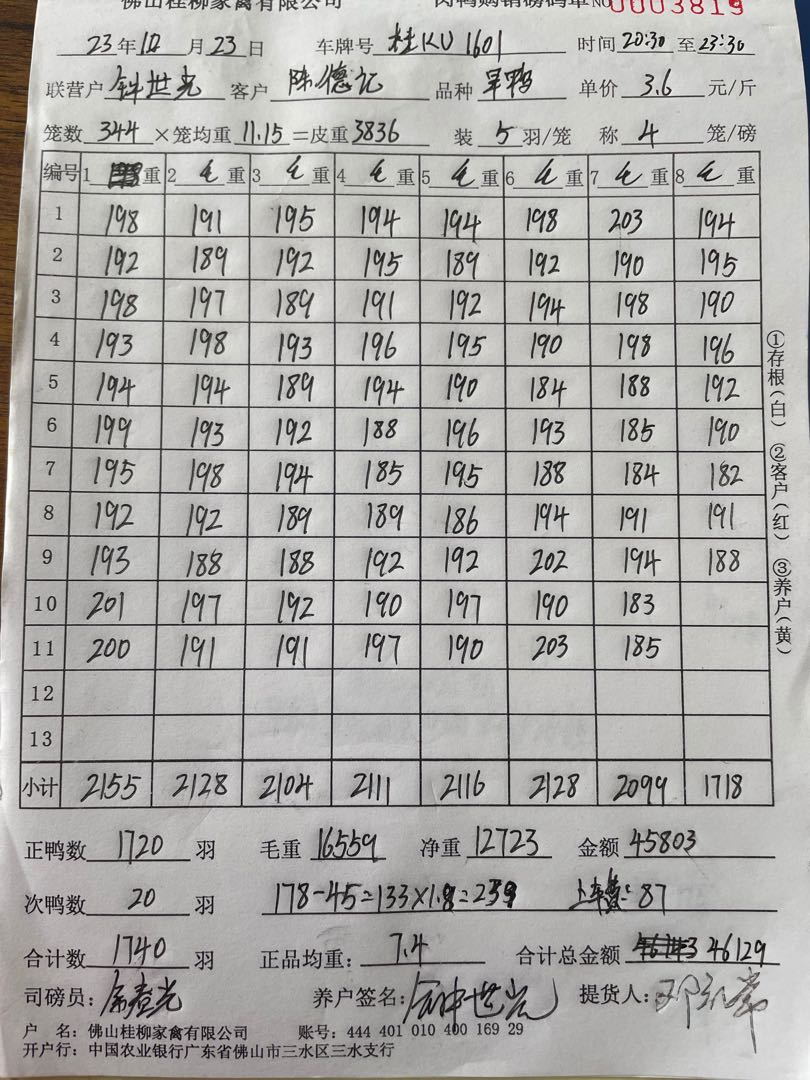 佛山桂柳家禽有限公司 肉鸭购销磅码单 No 0003819
23年10月23日 车牌号 桂KU1601 时间 20:30 至 23:30
联营户 钟世光 客户 陈德记 品种 旱鸭 单价 3.6 元/斤
笼数 344 ×笼均重 11.15 =皮重 3836 装 5 羽/笼 称 4 笼/磅
编号 1 重 2 毛 重 3 毛 重 4 毛 重 5 毛 重 6 毛 重 7 毛 重 8 毛 重
1 198 191 195 194 194 198 203 194
2 192 189 192 195 189 192 190 195
3 198 197 189 191 192 194 198 190
4 193 198 193 196 195 190 198 196
5 194 194 189 194 190 184 188 192
6 199 193 192 188 196 193 185 190
7 195 198 194 185 195 188 184 182
8 192 192 189 189 186 194 191 191
9 193 188 188 192 192 202 194 188
10 201 197 192 190 197 190 183
11 200 191 191 197 190 203 185
12
13
小计 2155 2128 2104 2111 2116 2128 2099 1718
正鸭数 1720 羽 毛重 16559 净重 12723 金额 45803
次鸭数 20 羽 178-45=133×1.8=239 上车费:87
合计数 1740 羽 正品均重: 7.4 合计总金额 46129
司磅员: 养户签名: 钟世光 提货人:
户 名: 佛山桂柳家禽有限公司 账号: 444 401 010 400 169 29
开户行: 中国农业银行广东省佛山市三水区三水支行
①存根(白) ②客户(红) ③养户(黄)